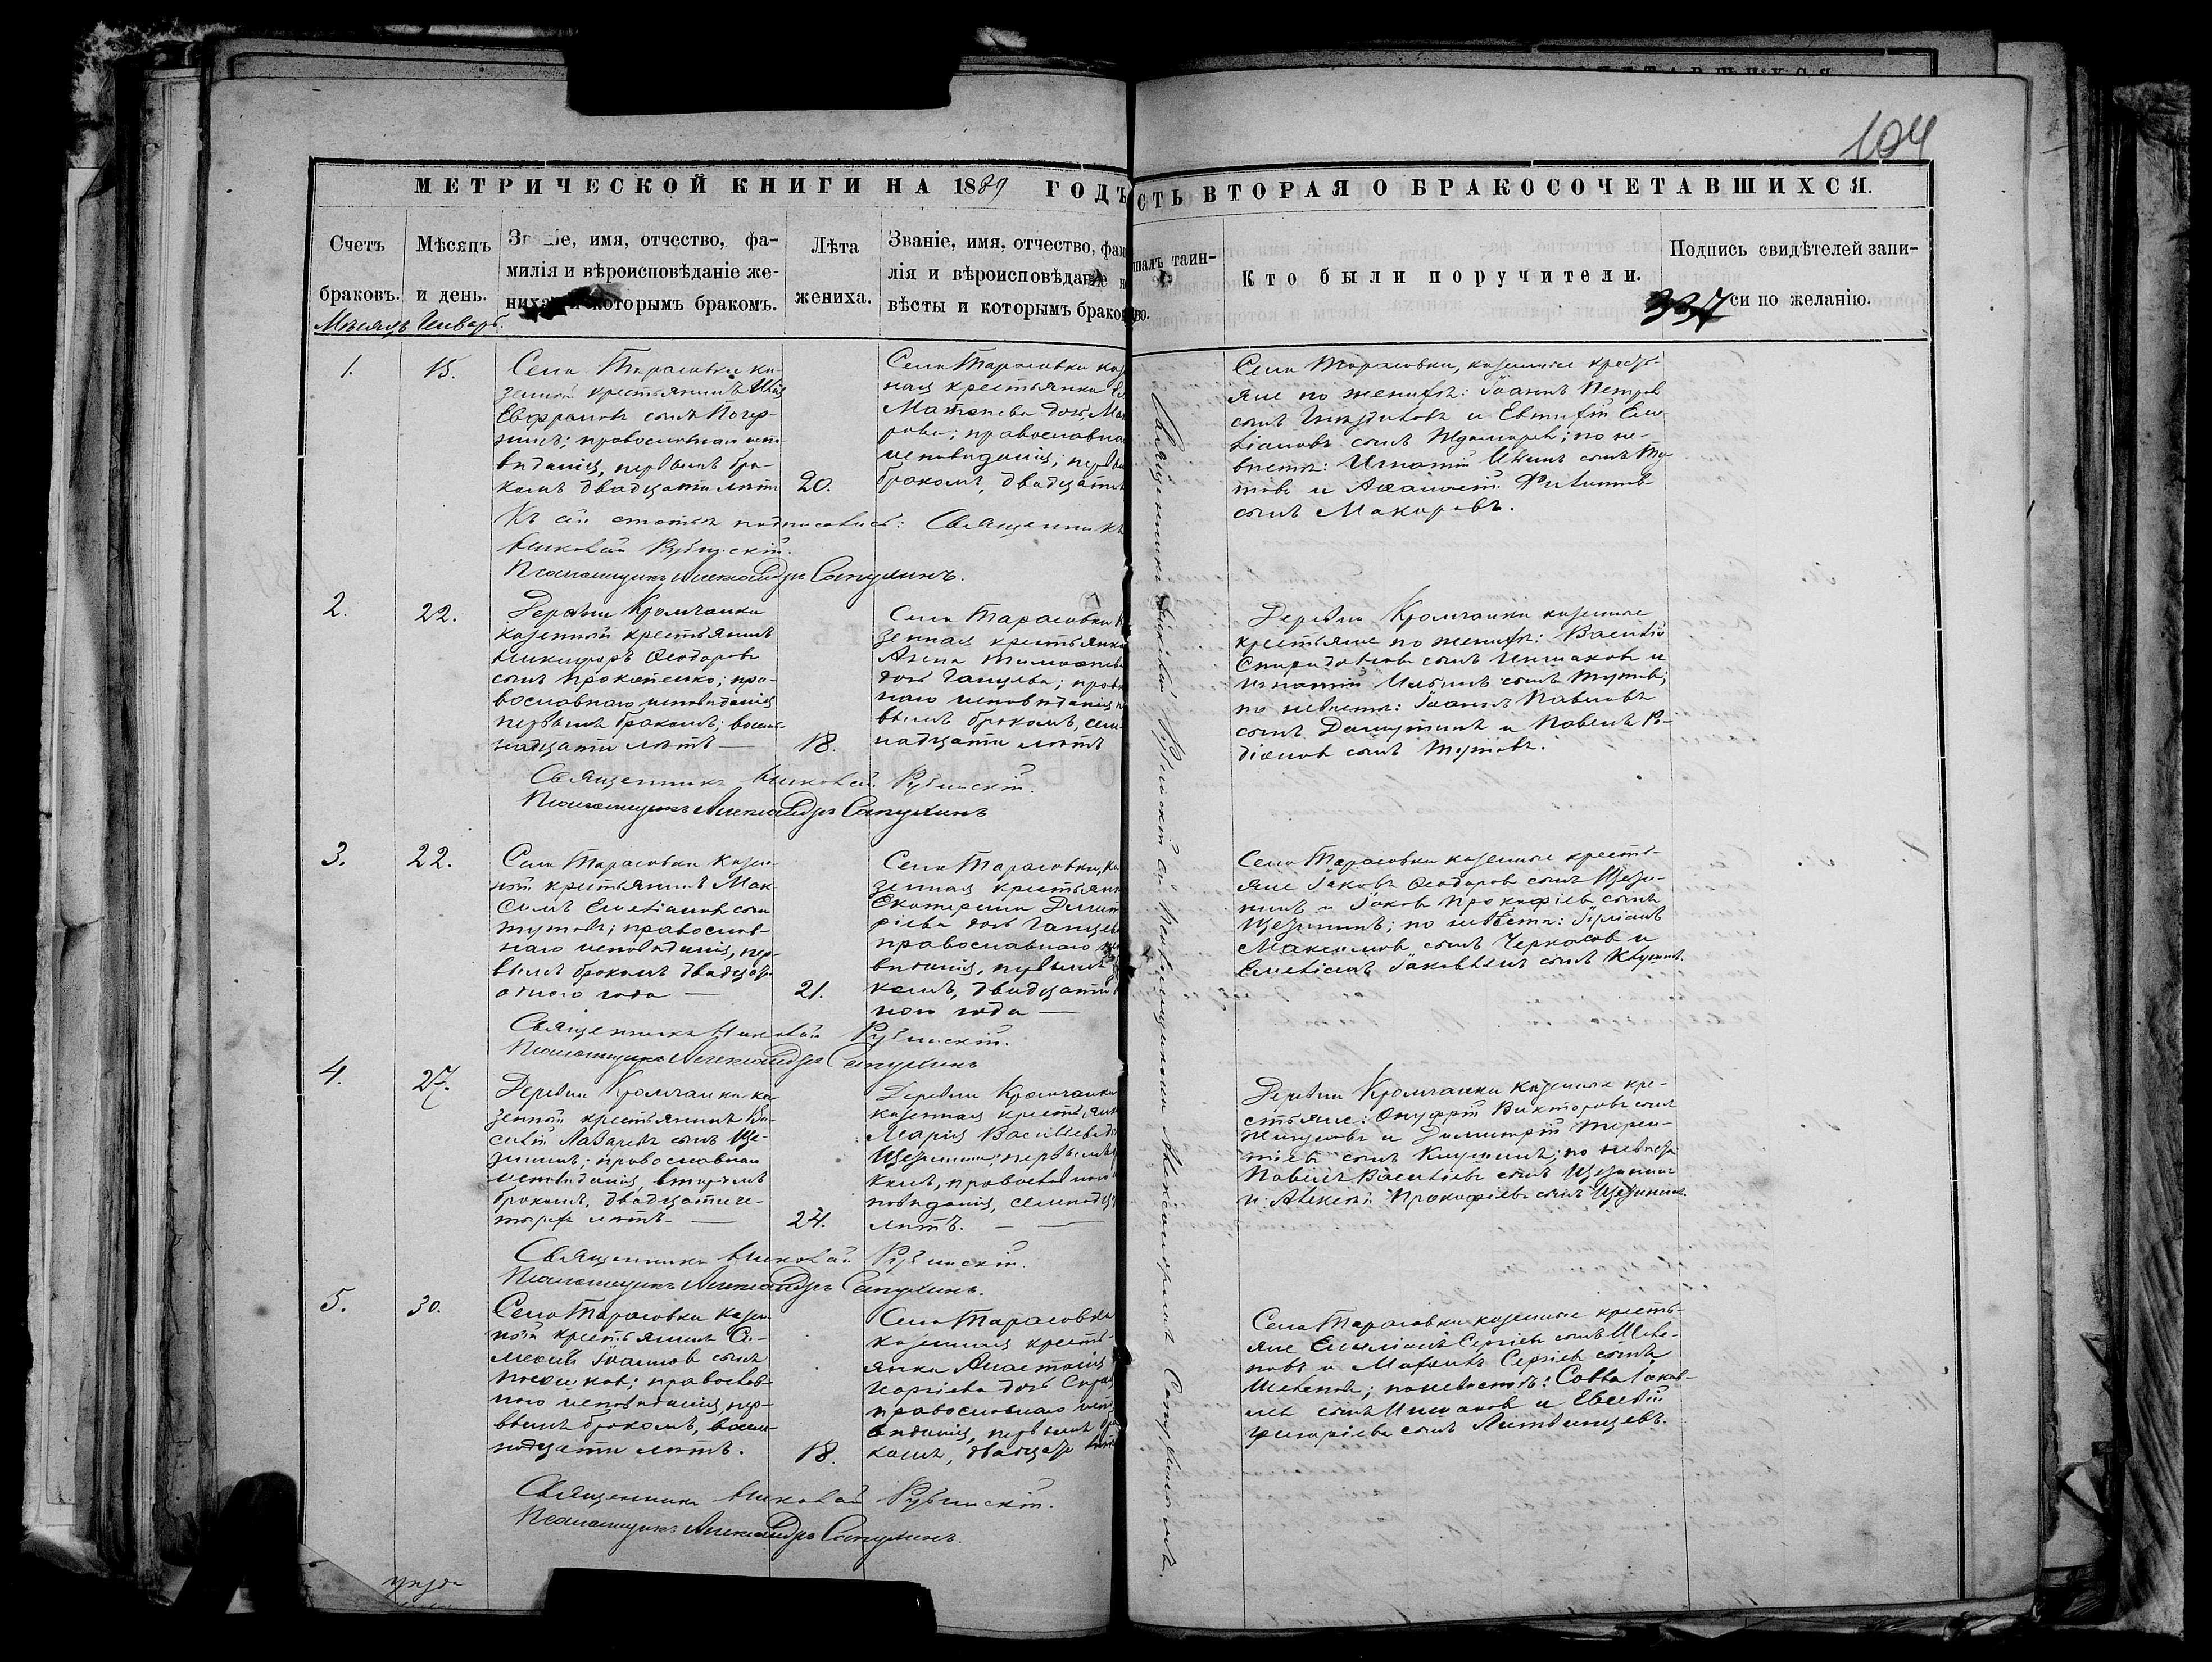 104
МЕТРИЧЕСКОЙ КНИГИ НА 1889 ГОДЪ
СТЬ ВТОРАЯ О БРАКОСОЧЕТАВШИХСЯ.
Счетъ
браковъ.
Мѣсяцъ
и день.
Званіе, имя, отчество, фа-
милія и вѣроисповѣданіе же-
ниха и которымъ бракомъ.
Лѣта
жениха.
Званіе, имя, отчество, фам
лія и вѣроисповѣданіе н
вѣсты и которымъ браком
шалъ таин-
во.
Кто были поручители.
Подпись свидѣтелей запи-
си по желанію.
337
Мѣсяцъ Январь.
1.
15.
Села Тарасовки ка-
зенный крестьянинъ
Евфрамовъ сынъ
православнаго испо-
вѣданія, первымъ бра-
комъ двадцати лѣтъ
20.
Села Тарасовки каз
ная крестьянка
Матвеева дочь Мак
рова; православна
исповѣданія; первы
бракомъ, двадцати
Села Тарасовки, казенные кресть-
яне по женихѣ: Іоаннъ Петровъ
сынъ и Евтихій Еме-
ліановъ сынъ по не-
вѣстѣ: Игнатій Ильинъ сынъ Ту-
товъ и Аѳанасій Филиповъ
сынъ Макаровъ.
Къ сей статьѣ подписались: Священникъ
Николай Рубинскій.
Псаломщикъ Александръ Сапухинъ.
2.
22.
Деревни Кромчанки
казенный крестьянинъ
Никифоръ Ѳеодоровъ
сынъ Прокопенко; пра-
вославнаго исповѣданія
первымъ бракомъ; восем-
надцати лѣтъ
18.
Села Тарасовки к
зенная крестьянка
Агепа Тимоѳеева
дочь Ганцева; правос
наго исповѣданія п
вымъ бракомъ, сем
надцати лѣтъ
Деревни Кромчанки казенные
крестьяне по женихѣ: Василій
Спиридоновъ сынъ Иншаковъ и
Игнатій Ильинъ сынъ Тутовъ;
по невѣстѣ: Іоаннъ Павловъ
сынъ и Павелъ Ро-
діоновъ сынъ Тутовъ.
Священникъ Николай Рубинскій.
Псаломщикъ Александръ Сапухинъ
3.
22.
Села Тарасовки казен-
ный крестьянинъ Мак-
симъ Емеліановъ сынъ
Тутовъ; православ-
наго исповѣданія, пер-
вымъ бракомъ двадцати
одного года
21.
Села Тарасовки, ка
зенная крестьянк
Екатерина Димит
ріева дочь Ганцева
православнаго испо
вѣданія, первымъ бр
комъ, двадцати
ного года
Села Тарасовки казенные кресть-
яне Іаковъ Ѳеодоровъ сынъ Щези-
нинъ и Іаковъ Прокофіевъ сынъ
Щезининъ; по невѣстѣ:
Максимовъ сынъ Черкасовъ и
Емеліанъ Іаковлевъ сынъ
Священникъ Николай Рубинскій.
Псаломщикъ Александръ Сапухинъ
4.
27.
Деревни Кромчанки ка-
зенный крестьянинъ Ва-
силій Лазаревъ сынъ Ще-
зининъ; православнаго
исповѣданія, вторымъ
бракомъ, двадцати че-
тырехъ лѣтъ
24.
Деревни Кромчанки
казенная крестьянк
Марія Васильева до
Щезинина; первымъ
комъ, православнаго
повѣданія, семнадца
лѣтъ.
Деревни Кромчанки казенные кре-
стьяне: Онуфрій Викторовъ сынъ
и Димитрій Терен-
тіевъ сынъ по невѣстѣ
Павелъ Васильевъ сынъ Щезининъ
и Алексѣй Прокофіевъ сынъ Щезининъ.
Священникъ Николай Рубинскій.
Псаломщикъ Александръ Сапухинъ.
5.
30.
Села Тарасовки казен
ный крестьянинъ
Іоанновъ сынъ
православ-
наго исповѣданія, пер-
вымъ бракомъ, восем-
надцати лѣтъ.
18.
Села Тарасовки
казенная кресть-
янка Анастасія
православнаго испо
вѣданія, первымъ бра
комъ, двадцати
Села Тарасовки казенные кресть-
яне Емеліанъ Сергіевъ сынъ
и Сергіевъ сынъ
по невѣстѣ: Савва Іаков-
левъ сынъ Иншаковъ и Евсевій
Григоріевъ сынъ Литвинцевъ.
Священникъ Николай Рубинскій.
Псаломщикъ Александръ Сапухинъ.
Священникъ Николай Рубинскій съ Псаломщикомъ Александромъ Сапухинымъ.